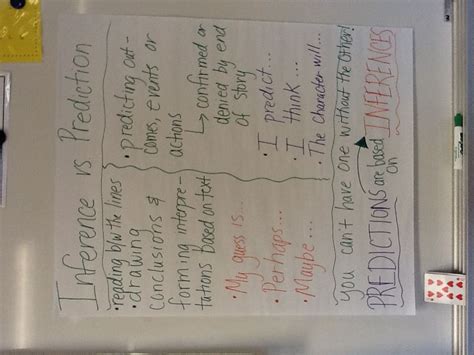 Inference vs Prediction
• reading b/w the lines
• drawing
conclusions &
forming interpre-
tations based on text
• My guess is...
• Perhaps...
• Maybe...
• predicting out-
comes, events or
actions
↳ confirmed or
denied by end
of story
• I predict...
• I think...
• The character will...
you can't have one without the other!
PREDICTIONS are based
on INFERENCES